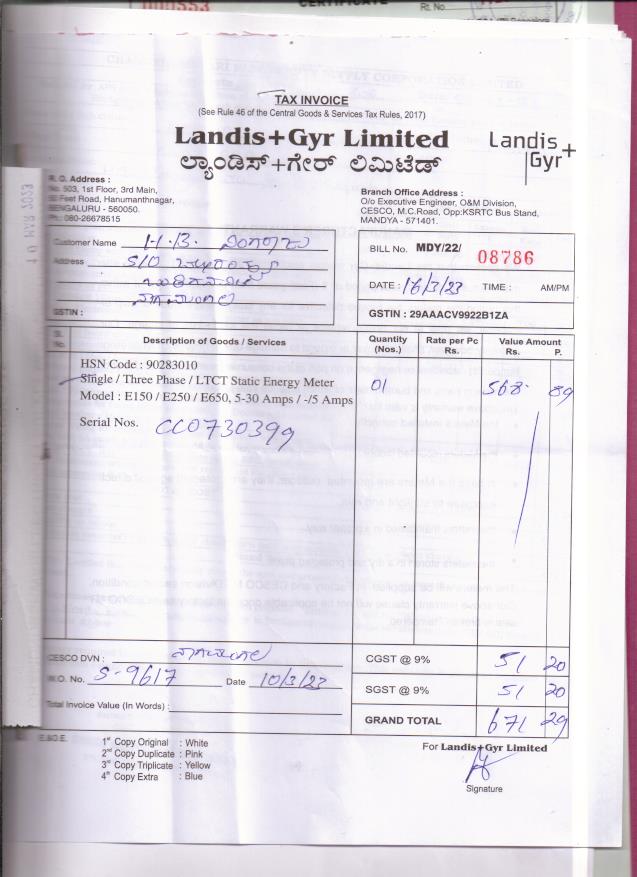 000553
CERTIFICATE
Rt. No.
TAX INVOICE
(See Rule 46 of the Central Goods & Services Tax Rules, 2017)
Landis+Gyr Limited
ಲ್ಯಾಂಡಿಸ್+ಗೇರ್ ಲಿಮಿಟೆಡ್
Landis+
Gyr
R. O. Address :
No. 503, 1st Floor, 3rd Main,
Feet Road, Hanumanthnagar,
BENGALURU - 560050.
Ph.: 080-26678515
Branch Office Address :
O/o Executive Engineer, O&M Division,
CESCO, M.C.Road, Opp:KSRTC Bus Stand,
MANDYA - 571401.
10 MAR 2023
Customer Name H.B. ನಿಂಗರಾಜು
Address S/O
ನಾಗಮಂಗಲ
GSTIN :
BILL No. MDY/22/ 08786
DATE : 16/3/23 TIME : AM/PM
GSTIN : 29AAACV9922B1ZA
Sl. No. Description of Goods / Services Quantity (Nos.) Rate per Pc Rs. Value Amount Rs. P.
HSN Code : 90283010
Single / Three Phase / LTCT Static Energy Meter 01 568 89
Model : E150 / E250 / E650, 5-30 Amps / -/5 Amps
Serial Nos. CC0730399
CESCO DVN : ನಾಗಮಂಗಲ
W.O. No. S-9617 Date 10/3/23
Total Invoice Value (In Words) :
CGST @ 9% 51 20
SGST @ 9% 51 20
GRAND TOTAL 671 29
E.&O.E.
1st Copy Original : White
2nd Copy Duplicate : Pink
3rd Copy Triplicate : Yellow
4th Copy Extra : Blue
For Landis+Gyr Limited
Signature